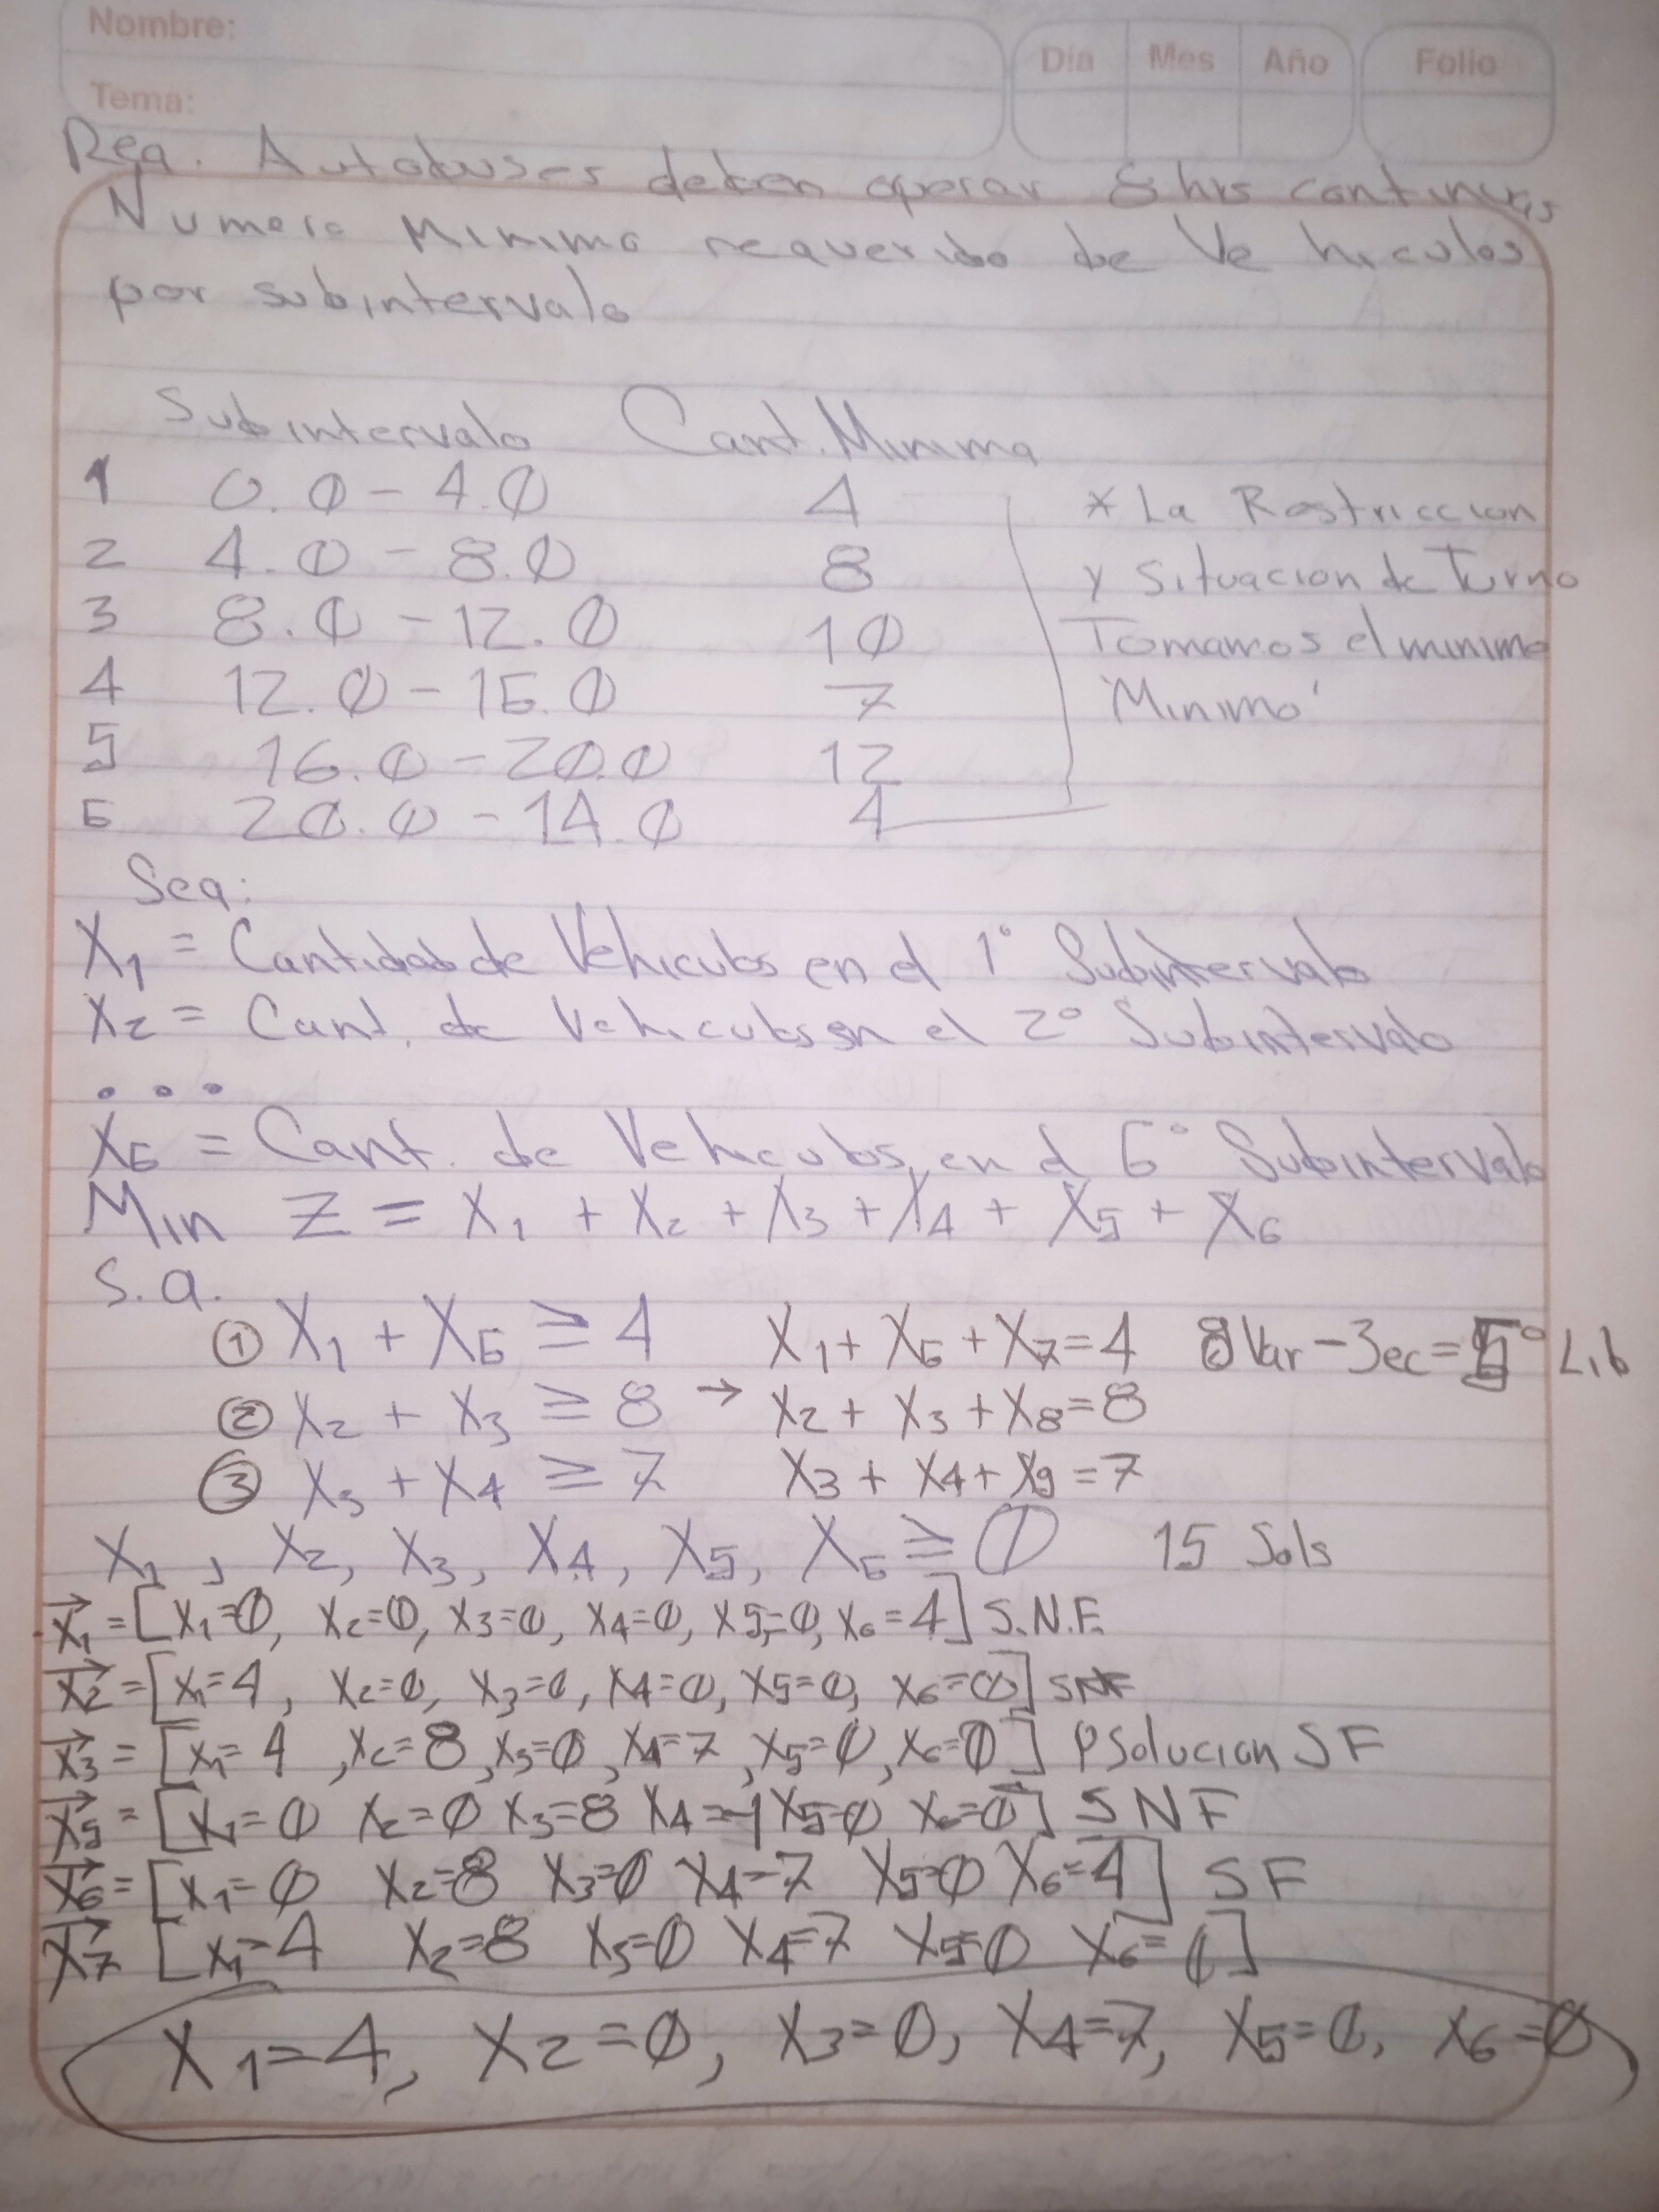 Nombre:
Tema:
Día Mes Año Folio
Req. Autobuses deben operar 8 hrs continuas
Numero Minimo requerido de Vehiculos
por subintervalo
Subintervalo Cant. Minima
1 0.0 - 4.0 4
2 4.0 - 8.0 8
3 8.0 - 12.0 10
4 12.0 - 16.0 7
5 16.0 - 20.0 12
6 20.0 - 14.0 4
* La Restriccion
y Situacion de Turno
Tomamos el minimo
'Minimo'
Sea:
X1 = Cantidad de Vehiculos en el 1° Subintervalo
X2 = Cant. de Vehiculos en el 2° Subintervalo
...
X6 = Cant. de Vehiculos en el 6° Subintervalo
Min Z = X1 + X2 + X3 + X4 + X5 + X6
S.a.
① X1 + X6 ≥ 4 X1 + X6 + X7 = 4 8 Var - 3 ec = 5° Lib
② X2 + X3 ≥ 8 → X2 + X3 + X8 = 8
③ X3 + X4 ≥ 7 X3 + X4 + X9 = 7
X1, X2, X3, X4, X5, X6 ≥ 0 15 Sols
X1 = [X1=0, X2=0, X3=0, X4=0, X5=0, X6=4] S.N.F.
X2 = [X1=4, X2=0, X3=0, X4=0, X5=0, X6=0] SNF
X3 = [X1=4, X2=8, X3=0, X4=7, X5=0, X6=0] PSolucion SF
X5 = [X1=0 X2=0 X3=8 X4=-1 X5=0 X6=0] SNF
X6 = [X1=0 X2=8 X3=0 X4=7 X5=0 X6=4] SF
X7 [X1=4 X2=8 X3=0 X4=7 X5=0 X6=0]
X1=4, X2=0, X3=0, X4=7, X5=0, X6=0